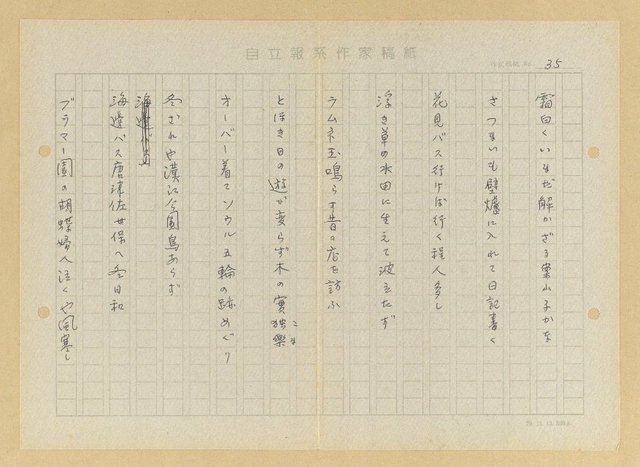 自立報系作家稿紙
35
霜白くいまだ解かざる案山子かな
さつまいも壁爐に入れて日記書く
花見バス行けば行く程人多し
浮き草の水田に生えて波立たず
ラムネ玉鳴らす昔の店を訪ふ
とほき日の遊び変らず木の實独樂
こま
オーバー着てソウル五輪の跡めぐり
冬ざれや漢江今圓鳥あらず
海邊バス
海邊バス唐津佐世保へ冬日和
グラマー園の胡蝶婦人泣くや風寒し